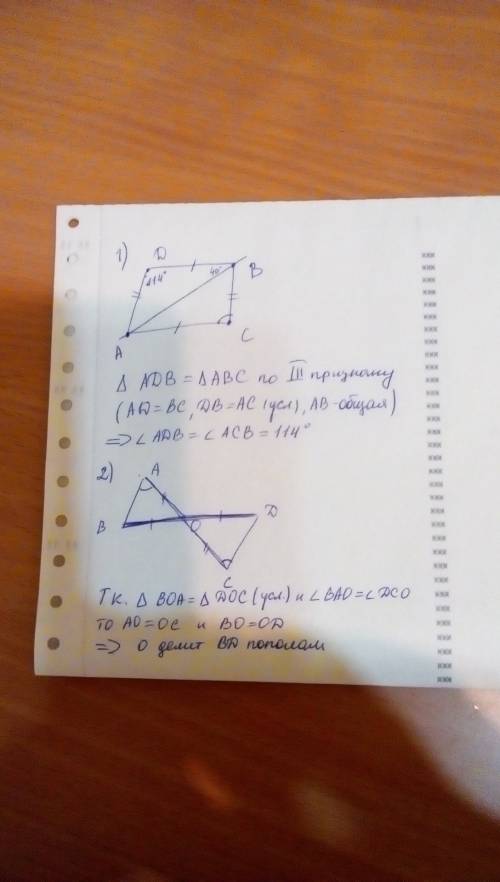 1)
D
114°
40°
B
A
C
Δ ADB = ΔABC по III признаку
(AD=BC, DB=AC (усл), AB-общая)
=> ∠ ADB = ∠ ACB = 114°
2)
A
B
O
D
C
Тк. Δ BOA = Δ DOC (усл) и ∠BAO=∠DCO
то AO=OC и BO=OD
=> O делит BD пополам